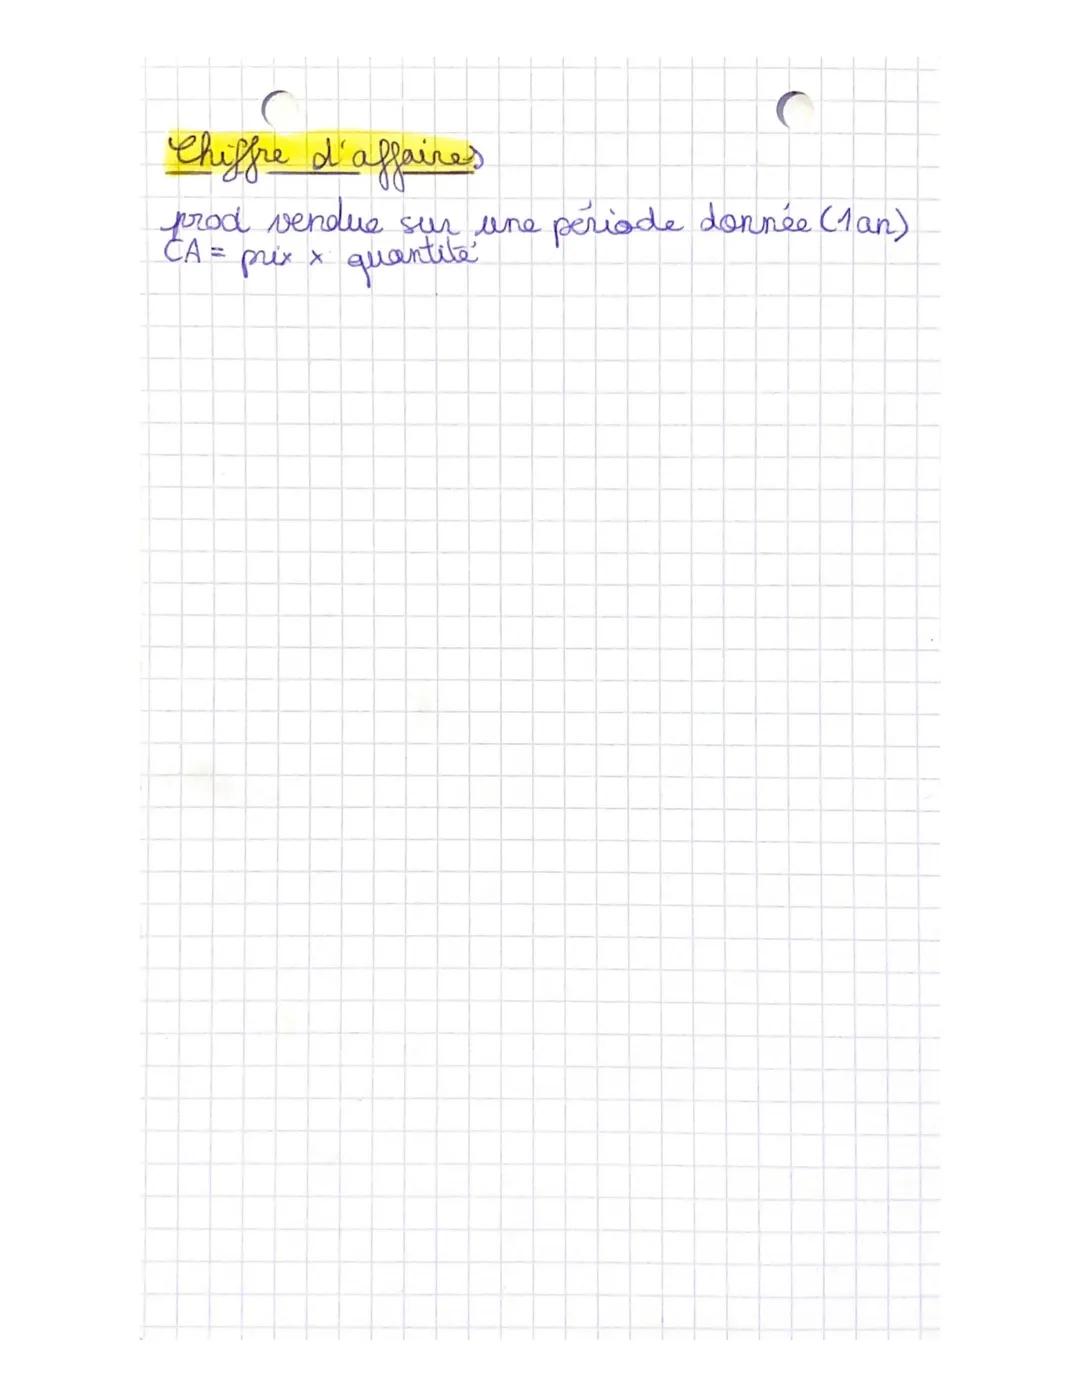 Chiffre d'affaires
prod vendue sur une période donnée (1 an)
CA = prix x quantité